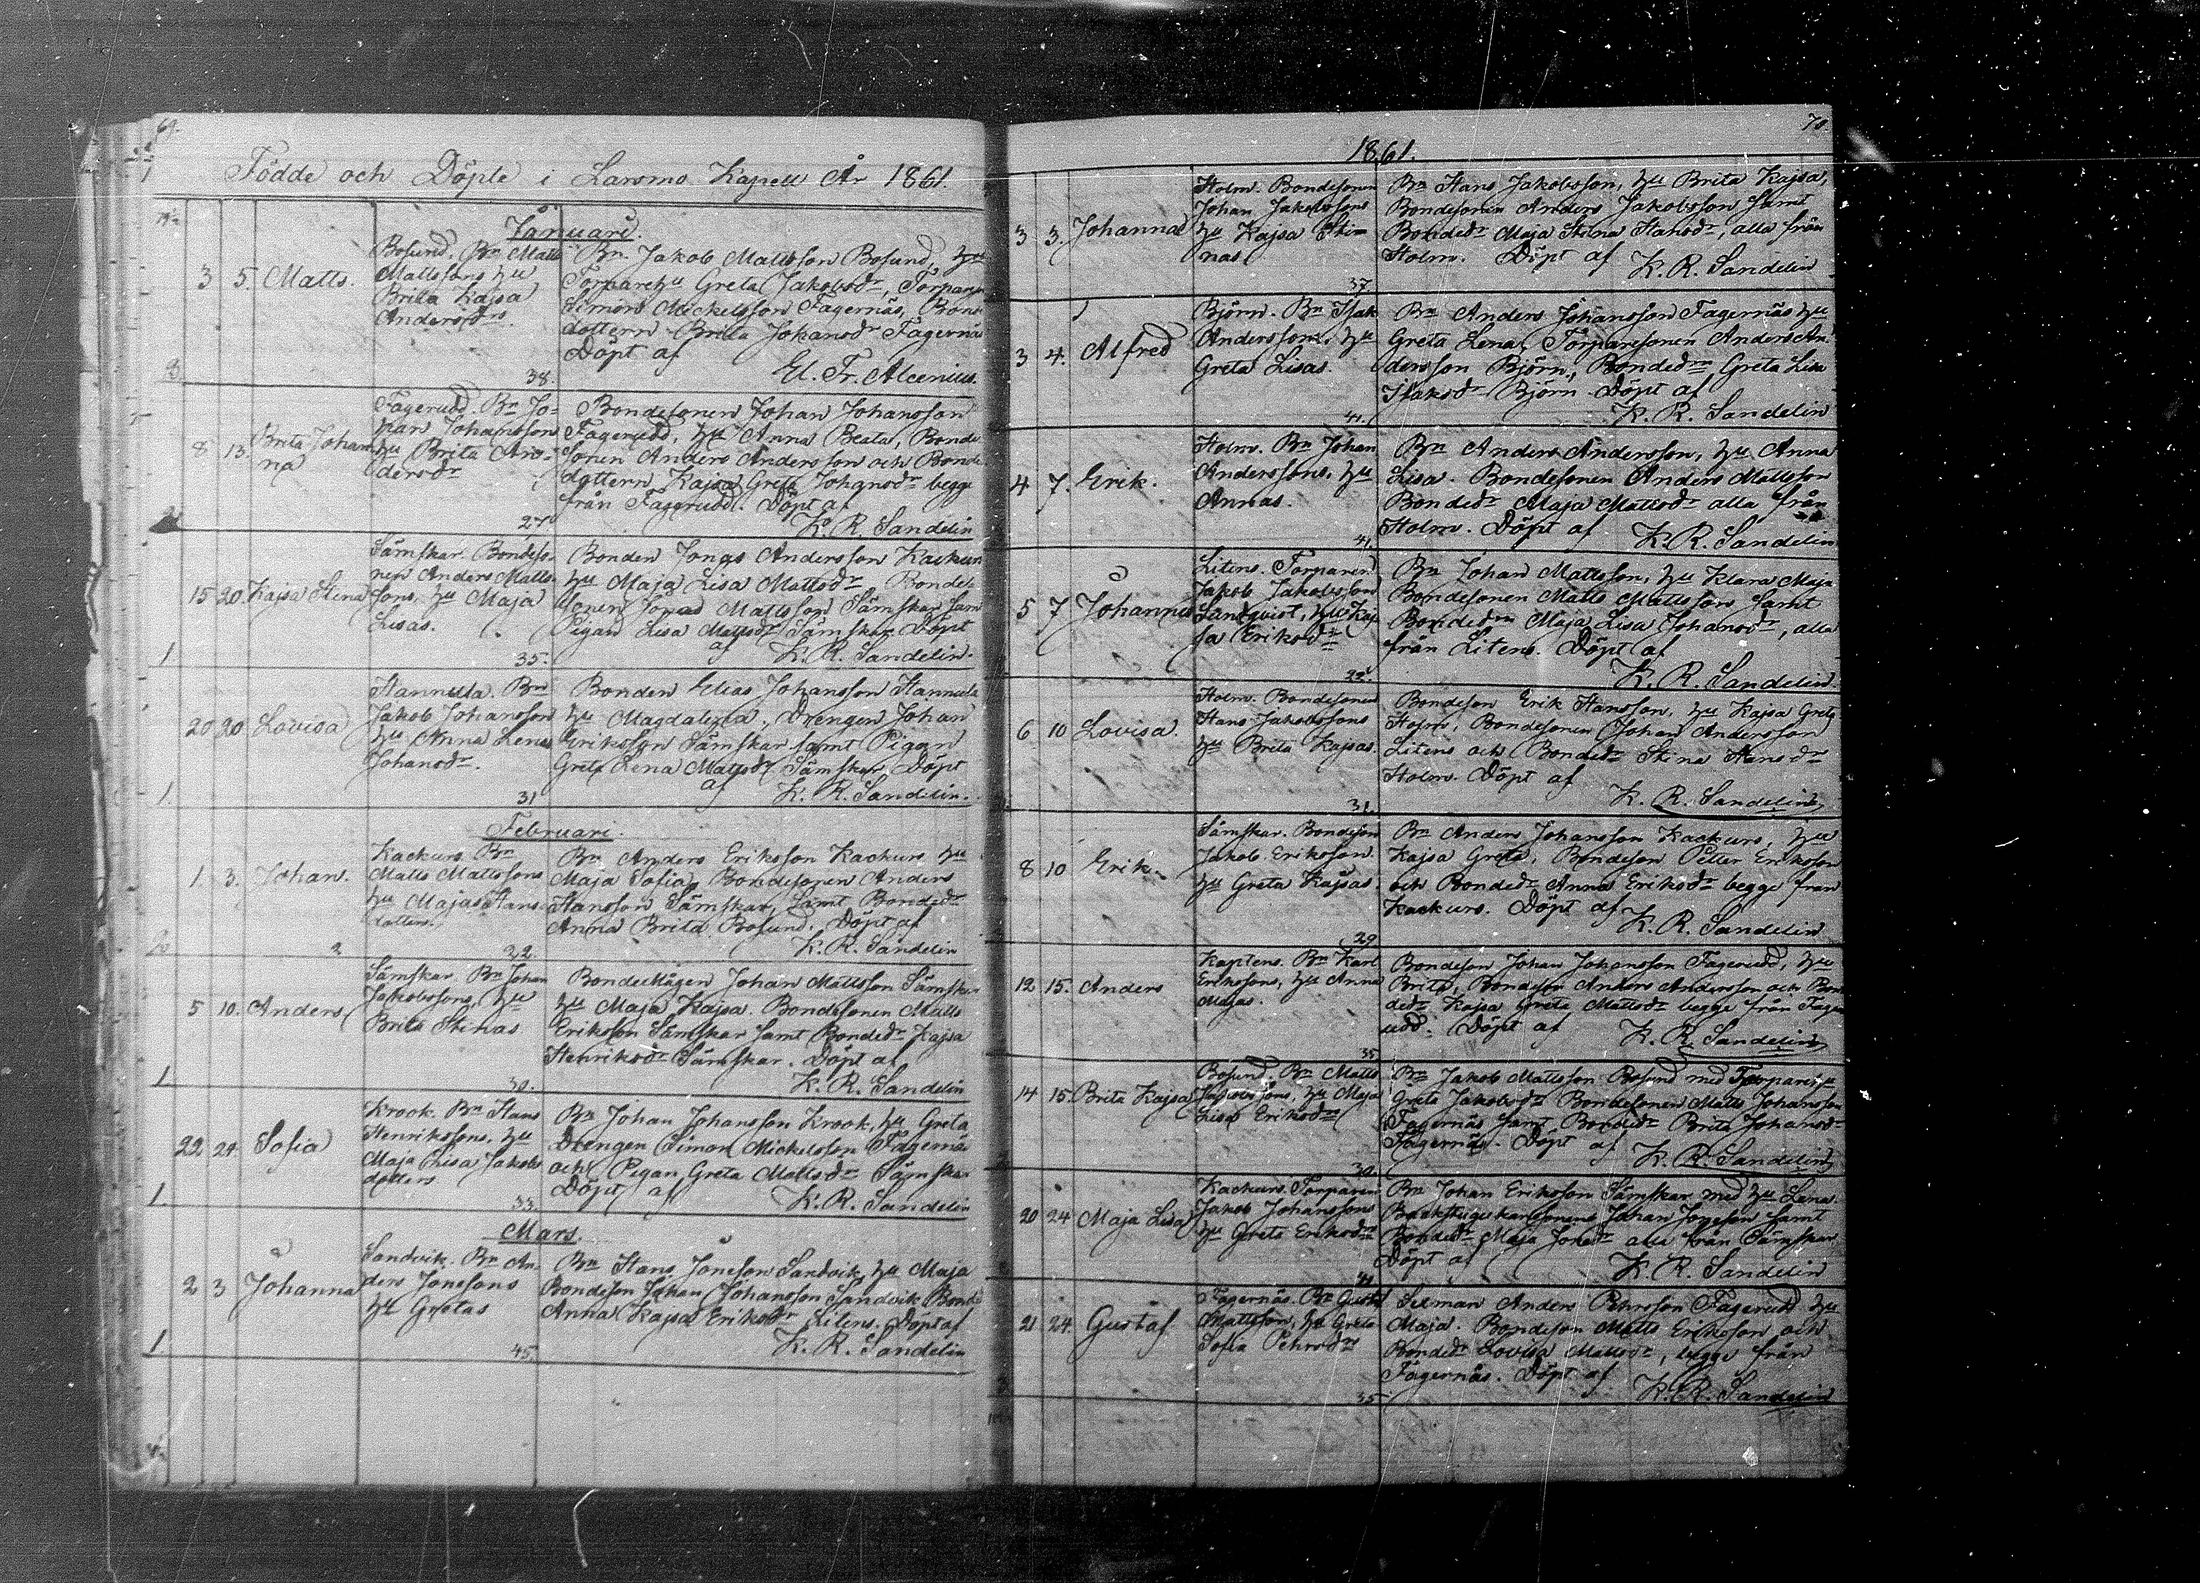 69.
Födde och Döpte i Larsmo Kapell År 1861.
Januari.
3 5. Matts.
Bosund. Bn Matts
Mattssons hu
Brita Kajsa
Andersdrs.
38.
Bn Jakob Mattsson Bosund, hu
Torpare hu Greta Jakobsdr, Torparen
Simon Mickelsson Fagernäs, Bonde
dottern Brita Johansdr Fagernäs
Döpt af
El. Fr. Alcenius.
8 13. Brita Johan
na
Fagerudd. Bn Jo-
han Johansson
hu Brita An-
dersdr
27
Bondesonen Johan Johansson
Fagerudd, hu Anna Beata, Bonde
sonen Anders Andersson och Bonde
dottern Kajsa Greta Johansdr begge
från Fagerudd. Döpt af
K. R. Sandelin
15 20. Kajsa Stina
Sämskar. Bondeso-
nen Anders Matts
sons, hu Maja
Lisas.
35.
Bonden Jonas Andersson Kackur
hu Maja Lisa Mattsdr Bonde
sonen Jonas Mattsson Sämskar sam
Pigan Lisa Mattsdr Sämskar Döpt
af K. R. Sandelin.
1
20 20 Lovisa
Hannula. Bn
Jakob Johansson
hu Anna Lenas
Johansdr.
31
Bonden Elias Johansson Hannula
hu Magdalena, Drengen Johan
Eriksson Sämskar samt Pigan
Greta Lena Mattsdr Sämskar, Döpt
af K. R. Sandelin.
1.
Februari.
1. 3. Johan.
Kackurs Bn
Matts Mattssons
hu Majas Hans
dotter.
22.
Bn Anders Eriksson Kackurs hu
Maja Sofia, Bondesonen Anders
Hansson Sämskar, samt Bondedr
Anna Brita Bosund. Döpt af
K. R. Sandelin
5 10. Anders
Sämskar Bn Johan
Jakobssons, hu
Brita Stinas
30.
Bondemågen Johan Mattsson Sämskar
hu Maja Kajsa. Bondesonen Matts
Eriksson Sämskar samt Bondedr Kajsa
Henriksdr Sämskar. Döpt af
K. R. Sandelin
1
22 24 Sofia
Krook. Bn Hans
Henrikssons, hu
Maja Lisa Jakobs
dotters
33.
Bn Johan Johansson Krook, hu Greta
Drengen Simon Mickelsson Fagernäs
och Pigan Greta Mattsdr Sämska
Döpt af K. R. Sandelin
1.
Mars.
2 3 Johanna
Sandvik. Bn An-
ders Jonssons
hu Gretas
45.
Bn Hans Jonsson Sandvik hu Maja
Bondeson Johan Johansson Sandvik Bonde
Anna Kajsa Eriksdr Litens. Döpt af
K. R. Sandelin
1
70.
1861.
3 3. Johanna
Holm. Bondesonen
Johan Jakobssons
hu Kajsa Sti-
nas.
37.
Bn Hans Jakobsson, hu Brita Kajsa,
Bondesonen Anders Jakobsson samt
Bondedr Maja Stina Hansdr, alla från
Holm. Döpt af K. R. Sandelin
3 4. Alfred
Björn. Bn Isak
Anderssons, hu
Greta Lisas.
41.
Bn Anders Johansson Fagernäs hu
Greta Lena, Torparesonen Anders An
dersson Björn, Bondedr Greta Lisa
Isaksdr Björn. Döpt af
K. R. Sandelin
4 7. Erik.
Holm. Bn Johan
Anderssons, hu
Annas.
41.
Bn Anders Andersson, hu Anna
Lisa. Bondesonen Anders Mattsson
Bondedr Maja Mattsdr alla från
Holm. Döpt af K. R. Sandelin
5 7 Johannes
Litens. Torparen
Jakob Jakobsson
Sandqvist, hu Kaj
sa Eriksdr
Bn Johan Mattsson, hu Klara Maja
Bondesonen Matts Mattsson samt
Bondedr Maja Lisa Johansdr, alla
från Litens. Döpt af
K. R. Sandelin.
6 10 Lovisa.
Holm. Bondesonen
Hans Jakobssons
hu Brita Kajsas.
31.
Bondeson Erik Hansson, hu Kajsa Greta
Holm, Bondesonen Johan Andersson
Litens och Bondedr Stina Hansdr
Holm. Döpt af
K. R. Sandelin
8 10 Erik
Sämskar. Bondeson
Jakob Eriksson.
hu Greta Kajsas.
29
Bn Anders Johansson Kackurs, hu
Kajsa Greta, Bondeson Petter Eriksson
och Bondedr Anna Eriksdr begge från
Kackurs. Döpt af K. R. Sandelin
12 15. Anders
Kaptens. Bn Karl
Erikssons, hu Anna
Majas.
35
Bondeson Johan Johansson Fagerudd, hu
Brita, Bondeson Anders Andersson och Bon
dedr Kajsa Greta Mattsdr begge från Fage
udd. Döpt af K. R. Sandelin
14 15 Brita Kajsa
Bosund. Bn Matts
Jakobssons, hu Maja
Lisa Eriksdr
30.
Bn Jakob Mattsson Bosund med Torpare hu
Greta Jakobsdr Bondesonen Matts Johansson
Fagernäs samt Bondedr Brita Johansdr
Fagernäs. Döpt af K. R. Sandelin
20 24 Maja Lisa
Kackurs. Torparen
Jakob Johanssons
hu Greta Eriksdr
Bn Johan Eriksson Sämskar med hu Lena
Backstugukarlsonen Johan Jonsson samt
Bondedr Maja Jonsdr alla från Sämskar
Döpt af K. R. Sandelin
21 24. Gustaf
Fagernäs. Bn Gustaf
Mattsson, hu Greta
Sofia Pehrsdr
35
Sexman Anders Pehrsson Fagerudd hu
Maja. Bondeson Matts Eriksson och
Bondedr Lovisa Mattsdr, begge från
Fagernäs. Döpt af K. R. Sandelin